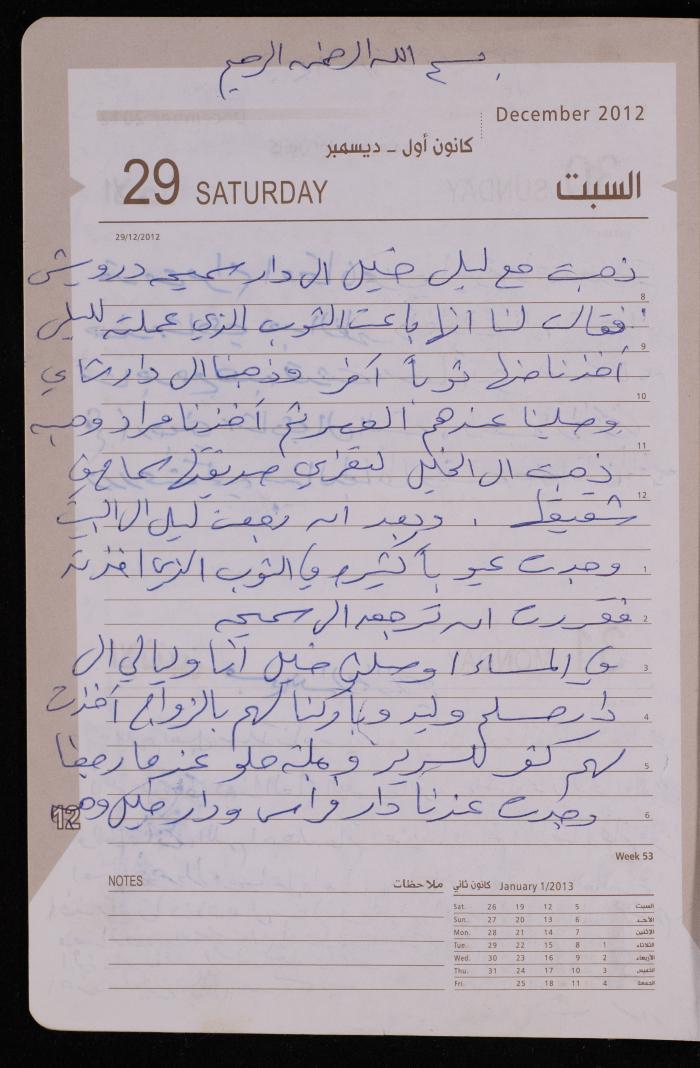 بسم الله الرحمن الرحيم
December 2012
كانون أول - ديسمبر
29 SATURDAY السبت
29/12/2012
ذهبت مع ليلى خليل الى دار سميحه درويش
8
فقالت لنا انها باعت الثوب الذي عملته لليلى
9
أخذنا منها ثوباً آخر وذهبنا الى دار شادي
10
وصلينا عندهم العصر ثم أخذنا مراد وهبه
11
ذهبت الى الخليل لتعزي صديقتها سماح في
12
شقيقها . وبعد ان رجعت ليلى الى البيت
1
وجدت عيوباً كثيره في الثوب الذي اخذته
2
فقررت ان ترجعه الى سميحه
3
في المساء اوصلني خليل أنا وليالي الى
4
دار مسلم وليد وباركنا لهم بالزواج أخذت
5
لهم كفر للسرير وعلبة حلو عندما رجعنا
6
وجدت عندنا دار فراس ودار خليل
12
Week 53
NOTES ملاحظات
كانون ثاني January 1/2013
Sat. 26 19 12 5 السبت
Sun. 27 20 13 6 الأحد
Mon. 28 21 14 7 الاثنين
Tue. 29 22 15 8 1 الثلاثاء
Wed. 30 23 16 9 2 الأربعاء
Thu. 31 24 17 10 3 الخميس
Fri. 25 18 11 4 الجمعة